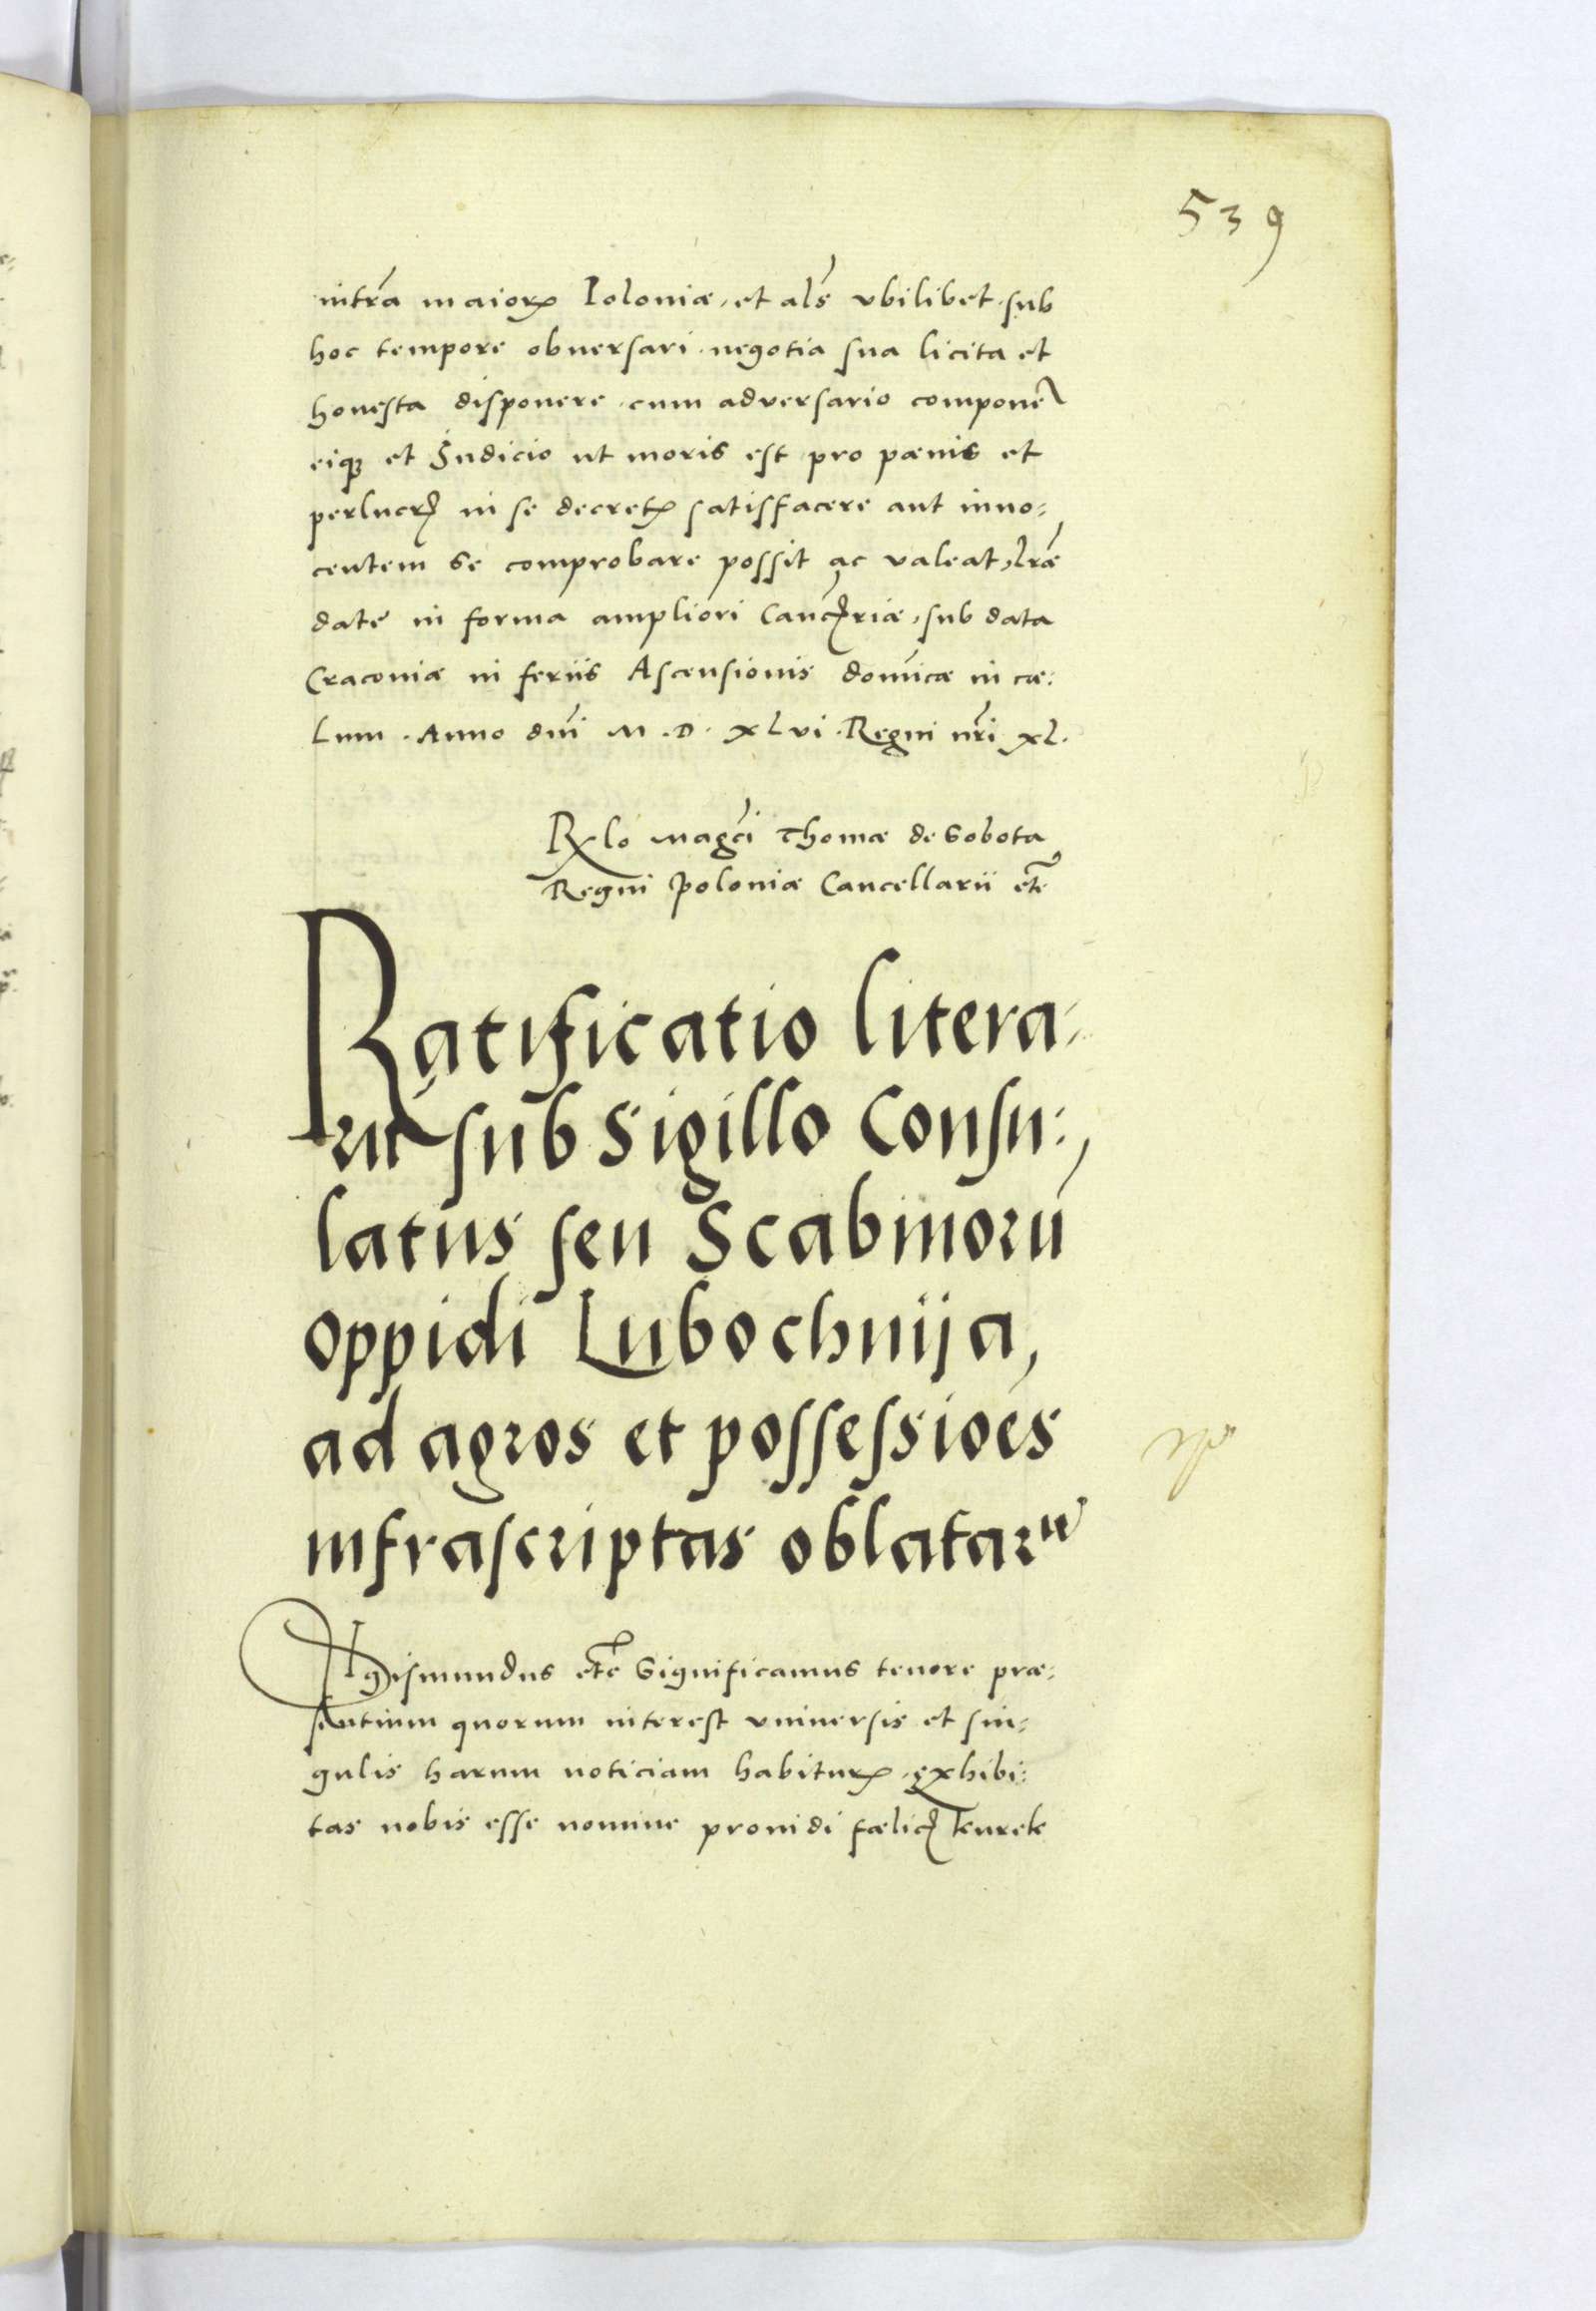 539
intra maiorꝝ Poloniæ, et alꝰs vbilibet sub
hoc tempore obuersari negotia sua licita et
honesta disponere cum adversario componeꝛ
eiqꝫ et Iudicio ut moris est pro pænis et
perlucrꝭ in se decretꝭ satisfacere aut inno:
centem se comprobare possit ac valeat, lr̃æ
datæ in forma ampliori Cancꝭriæ, sub data
Cracouiæ in feriis Ascensionis domĩcæ in cæ:
lum. Anno dnĩ M.D.XLvi. Regni nrĩ XL.
Rꝉo magci Thomæ de Sobota
Regni Poloniæ Cancellarii etc̃
Ratificatio litera:
rũ sub Sigillo Consu:
latus seu Scabinorũ
oppidi Lubochnija,
ad agros et possessiões
infrascriptas oblatarũ
Sigismundus etc̃ Significamus tenore præ:
sentium quorum interest vniuersis et sin:
gulis harum noticiam habiturꝭ, exhibi:
tas nobis esse nomine prouidi fælicꝭ Kurek